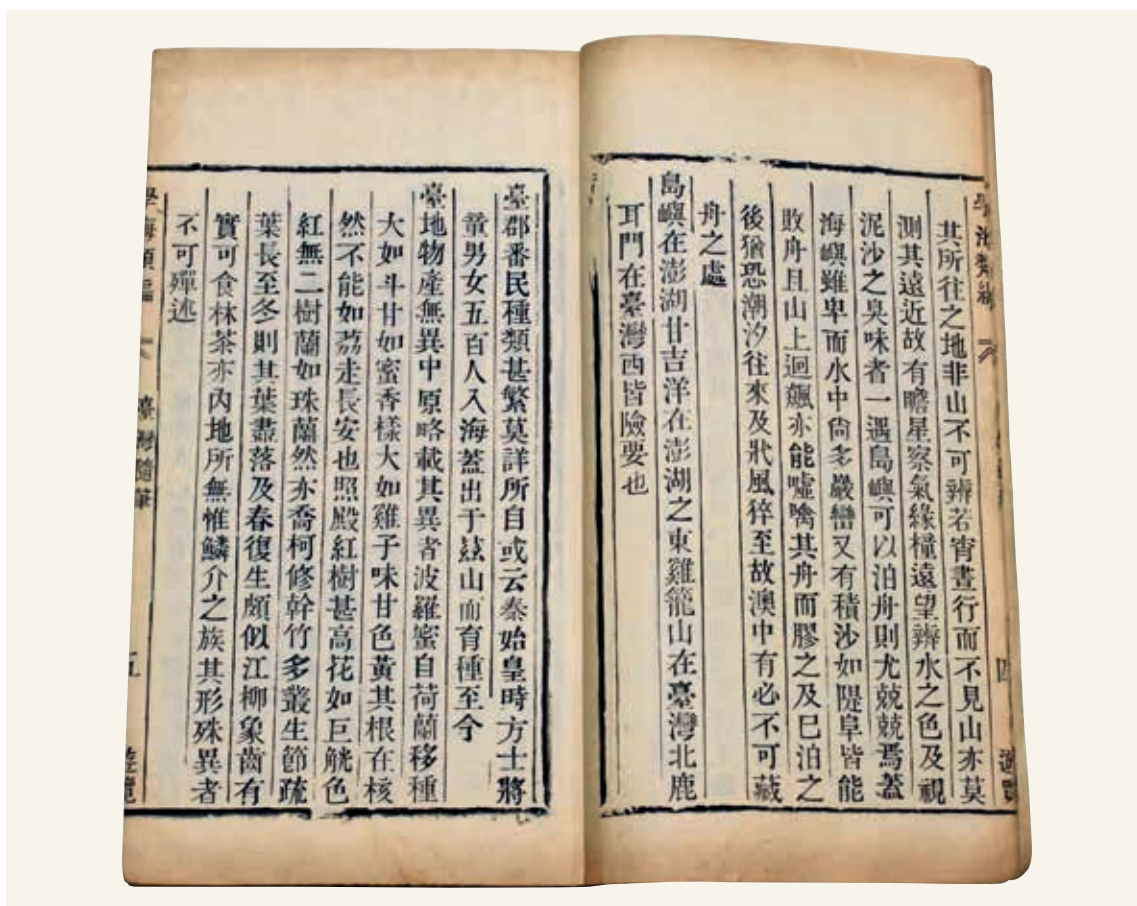 其所往之地非山不可辨若宵晝行而不見山亦莫
測其遠近故有瞻星察氣緣橦遠望辨水之色及視
泥沙之臭味者一遇島嶼可以泊舟則尤兢兢焉蓋
海嶼雖卑而水中尙多巖巒又有積沙如隄阜皆能
敗舟且山上迴飆亦能噓噏其舟而膠之及巳泊之
後猶恐潮汐往來及狀風猝至故澳中有必不可藏
舟之處
島嶼在澎湖甘吉洋在澎湖之東雞籠山在臺灣北鹿
耳門在臺灣西皆險要也
四
臺郡番民種類甚繁莫詳所自或云秦始皇時方士將
童男女五百人入海蓋出于玆山而育種至今
臺地物產無異中原略載其異者波羅蜜自荷蘭移種
大如斗甘如蜜香樣大如雞子味甘色黃其根在核
然不能如荔走長安也照殿紅樹甚高花如巨觥色
紅無二樹蘭如珠蘭然亦喬柯修幹竹多叢生節疏
葉長至冬則其葉盡落及春復生頗似江柳象齒有
實可食林茶亦內地所無惟鱗介之族其形殊異者
不可殫述
學海類編 臺灣隨筆 五 遊覽